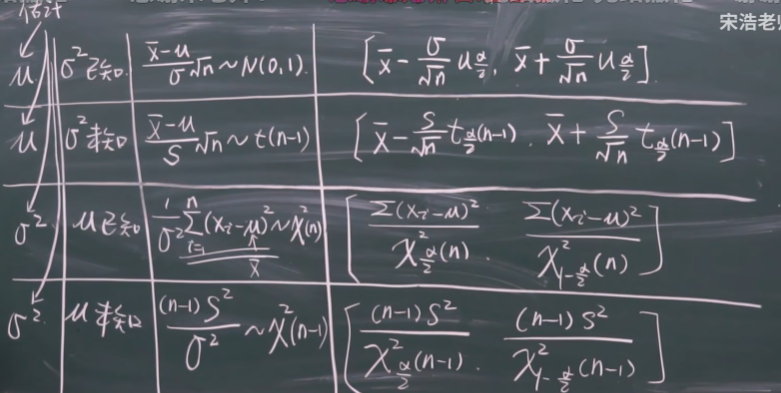 宋浩老师
估计
μ σ²已知 (x̄-μ)/σ √n ~ N(0,1). [x̄ - σ/√n u_{α/2}, x̄ + σ/√n u_{α/2}].
μ σ²未知 (x̄-μ)/S √n ~ t(n-1) [x̄ - S/√n t_{α/2}(n-1). x̄ + S/√n t_{α/2}(n-1)]
σ² μ已知 1/σ² Σ_{i=1}^{n} (x_i-μ)² ~ χ²(n) [Σ(x_i-μ)²/χ²_{α/2}(n). Σ(x_i-μ)²/χ²_{1-α/2}(n)]
x̄
σ². μ未知 (n-1)S²/σ² ~ χ²(n-1) [(n-1)S²/χ²_{α/2}(n-1). (n-1)S²/χ²_{1-α/2}(n-1)]